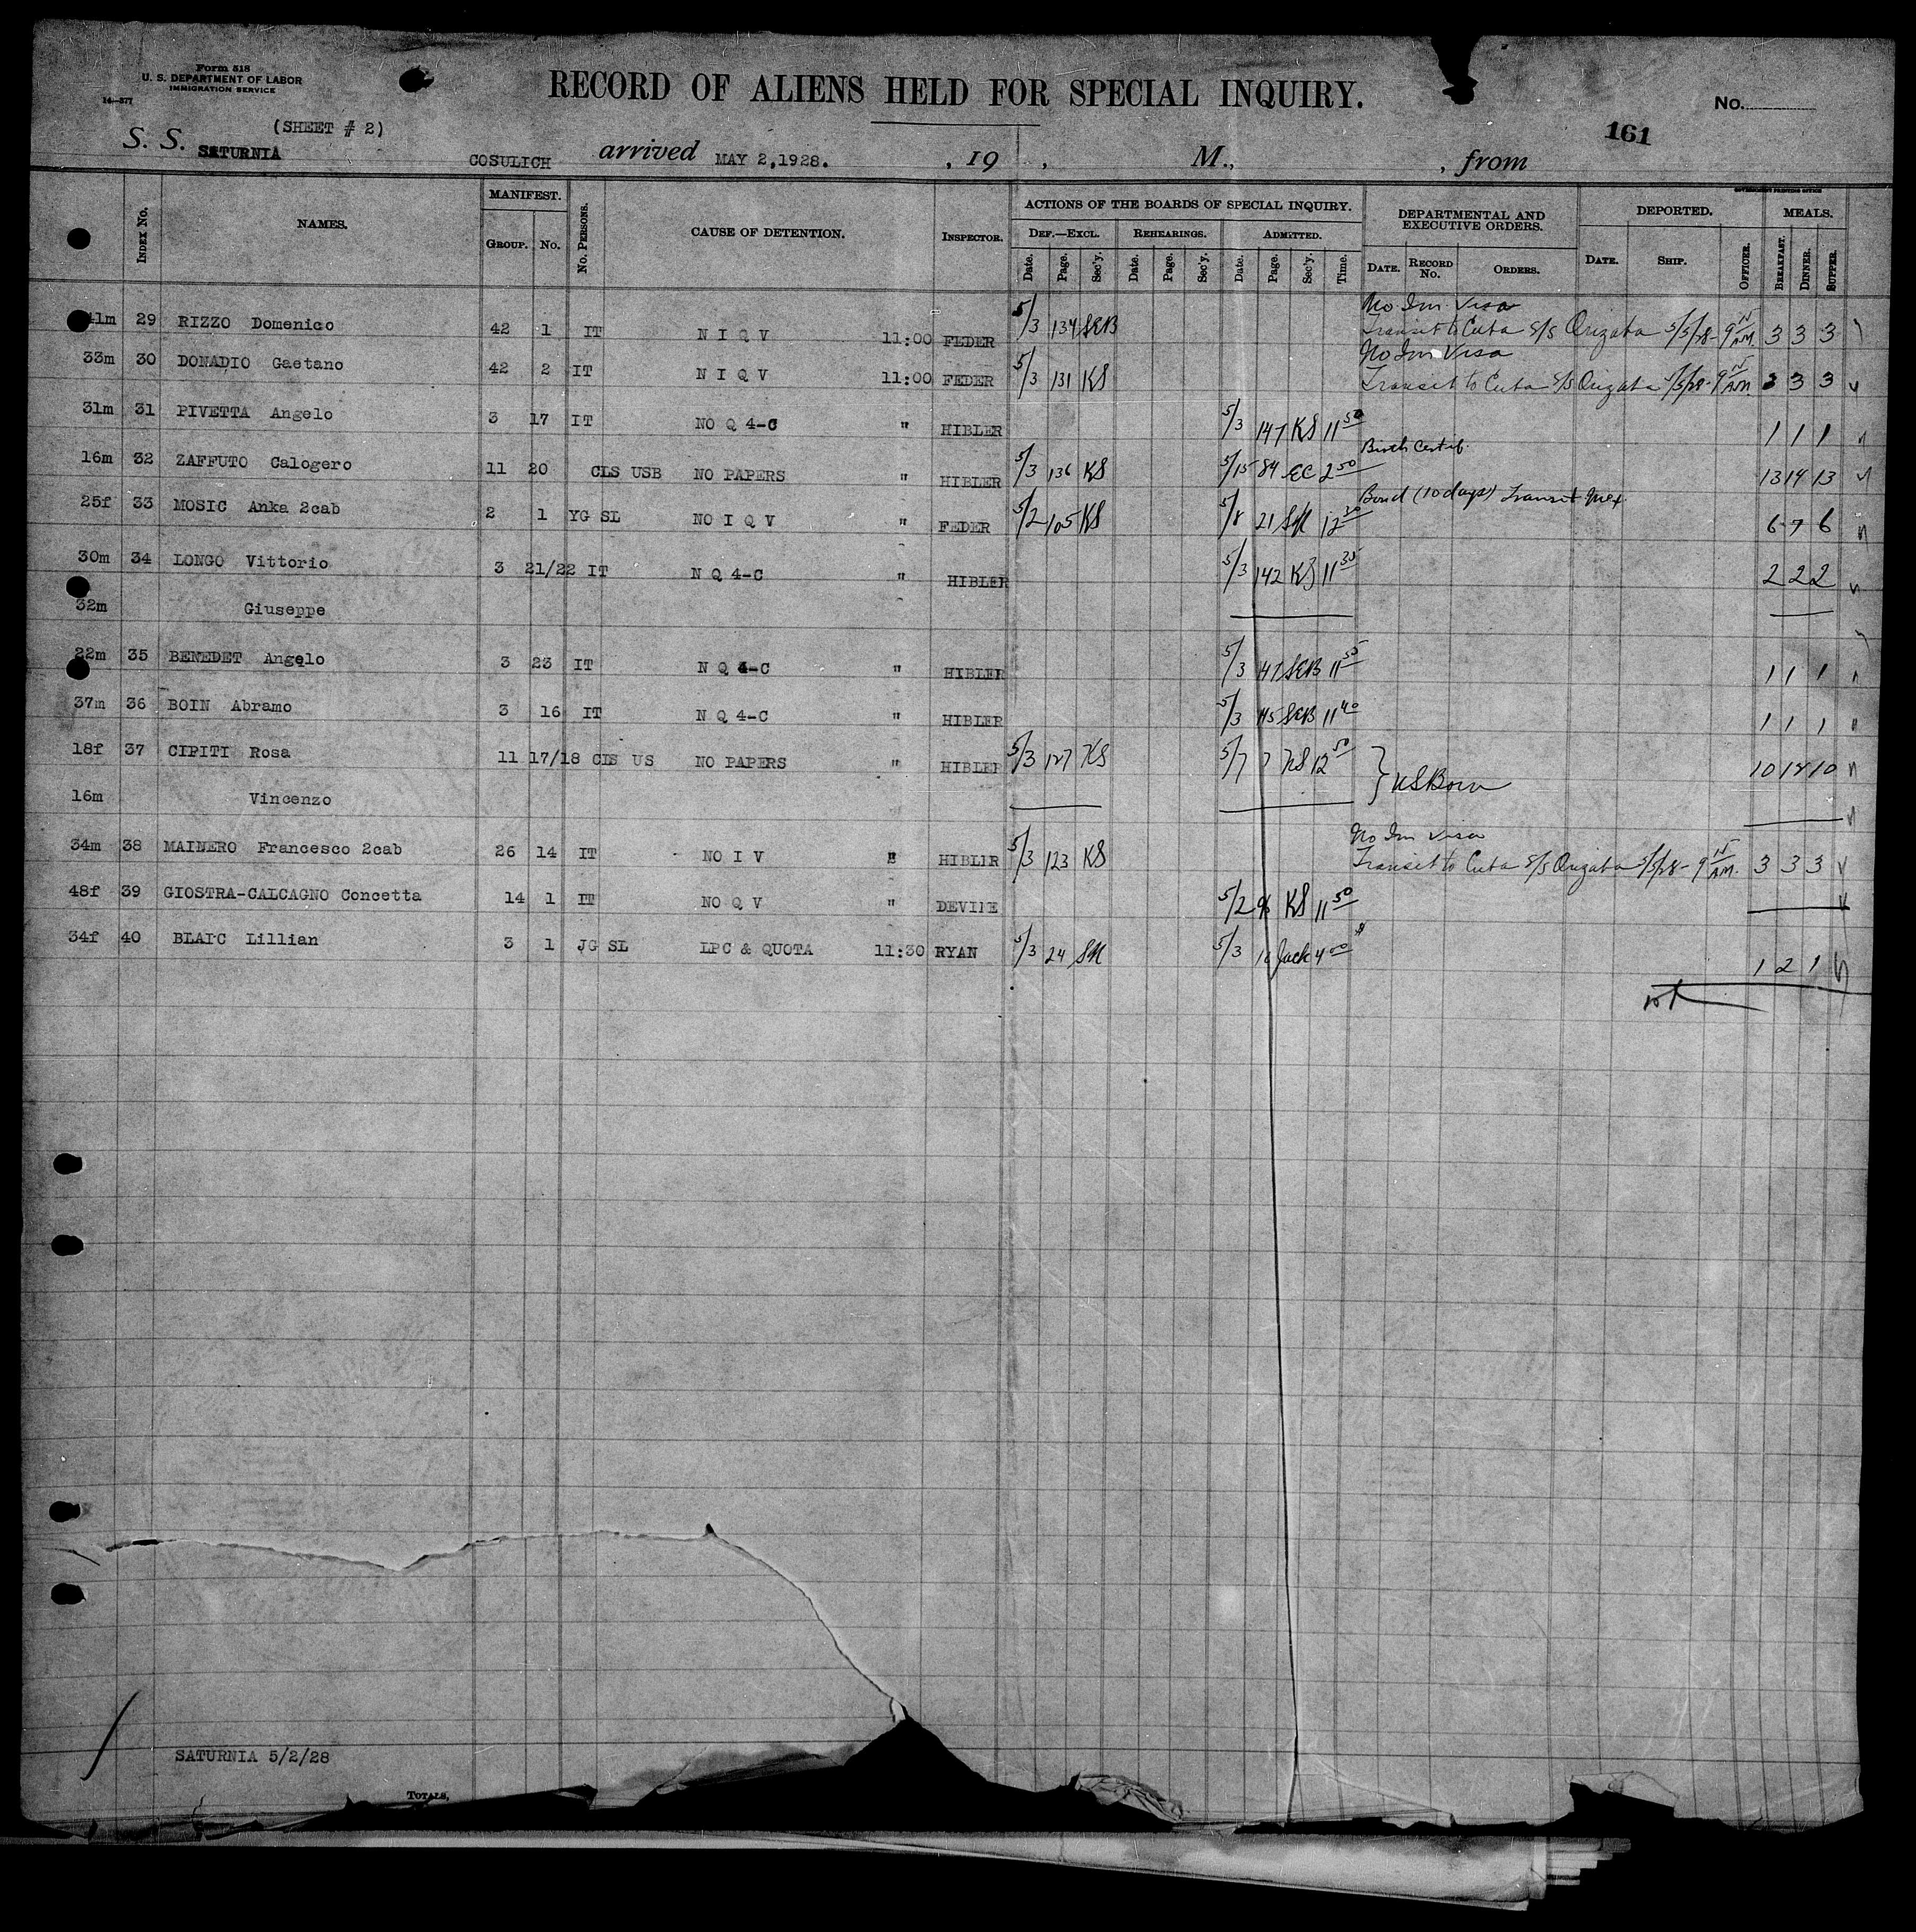 Form 518
U. S. DEPARTMENT OF LABOR
IMMIGRATION SERVICE
14-377
RECORD OF ALIENS HELD FOR SPECIAL INQUIRY.
No.
161
(SHEET # 2)
S. S. SATURNIA COSULICH arrived MAY 2,1928. , 19 , M., , from
GOVERNMENT PRINTING OFFICE
Index No. NAMES. MANIFEST. Group. No. No. Persons. CAUSE OF DETENTION. Inspector. ACTIONS OF THE BOARDS OF SPECIAL INQUIRY. DEPARTMENTAL AND EXECUTIVE ORDERS. DEPORTED. MEALS.
Def.—Excl. Rehearings. Admitted.
Date. Page. Sec'y. Date. Page. Sec'y. Date. Page. Sec'y. Time. Date. Record No. Orders. Date. Ship. Officer. Breakfast. Dinner. Supper.
No Im. Visa
41m 29 RIZZO Domenico 42 1 IT N I Q V 11:00 FEDER 5/3 134 SEB Transit to Cuba S/S Orizaba 5/5/28 - 9 15 AM. 3 3 3
No Im Visa
33m 30 DONADIO Gaetano 42 2 IT N I Q V 11:00 FEDER 5/3 131 KS Transit to Cuba S/S Orizaba 5/5/28 - 9 15 AM. 3 3 3
31m 31 PIVETTA Angelo 3 17 IT NO Q 4-C " HIBLER 5/3 147 KS 11 50 1 1 1
16m 32 ZAFFUTO Calogero 11 20 CLS USB NO PAPERS " HIBLER 5/3 136 KS 5/15 84 EC 2 50 Birth Certif. 13 14 13
25f 33 MOSIC Anka 2cab 2 1 YG SL NO I Q V " FEDER 5/2 105 KS 5/8 21 SM 12 30 Bond (10 days) Transit Mex. 6 7 6
30m 34 LONGO Vittorio 3 21/22 IT N Q 4-C " HIBLER 5/3 142 KS 11 35 2 2 2
32m Giuseppe
22m 35 BENEDET Angelo 3 23 IT N Q 4-C " HIBLER 5/3 147 SEB 11 55 1 1 1
37m 36 BOIN Abramo 3 16 IT N Q 4-C " HIBLER 5/3 145 SEB 11 40 1 1 1
18f 37 CIPITI Rosa 11 17/18 CLS US NO PAPERS " HIBLER 5/3 127 KS 5/7 7 KS 12 50 } US Born 10 12 10
16m Vincenzo
No Im Visa
34m 38 MAINERO Francesco 2cab 26 14 IT NO I V " HIBLER 5/3 123 KS Transit to Cuba S/S Orizaba 5/5/28 - 9 15 AM. 3 3 3
48f 39 GIOSTRA-CALCAGNO Concetta 14 1 IT NO Q V " DEVINE 5/2 96 KS 11 50
34f 40 BLAIC Lillian 3 1 JG SL LPC & QUOTA 11:30 RYAN 5/3 24 SM 5/3 16 Jack 4 00 1 2 1
SATURNIA 5/2/28
Totals,